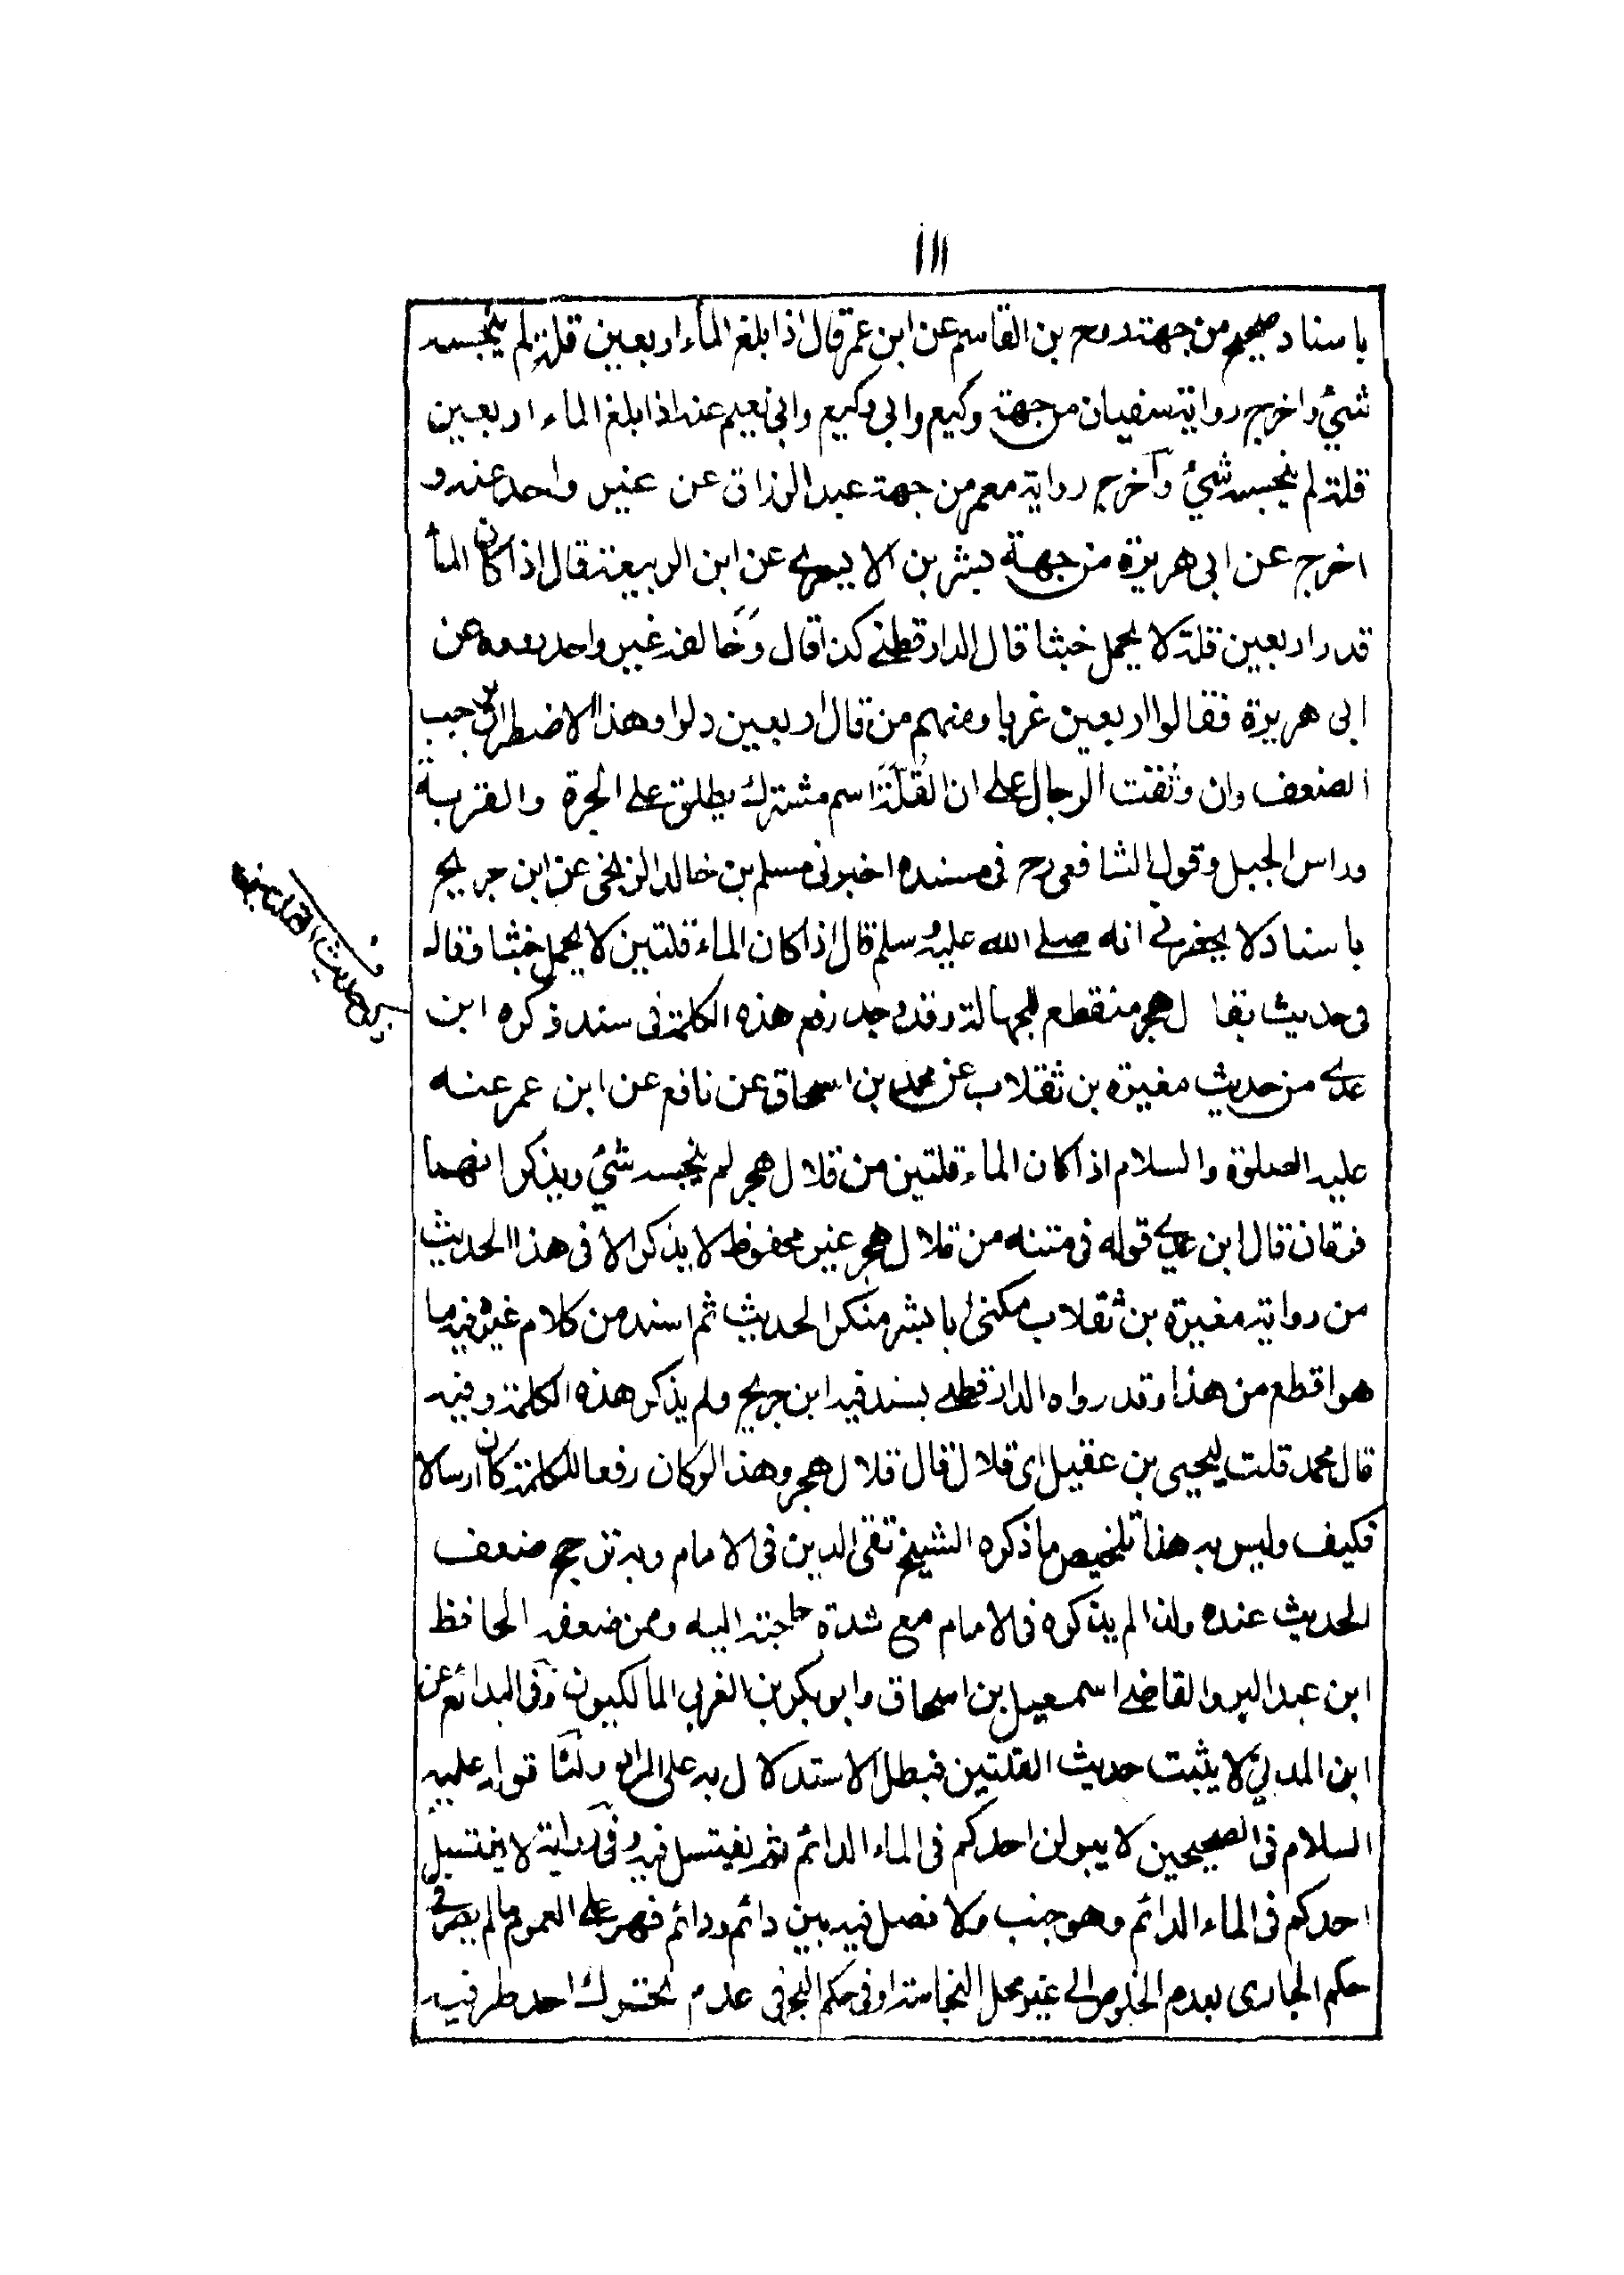 ١١١
باسناد صحيح من جهة روح بن القاسم عن ابن عمر قال اذا بلغ الماء اربعين قلة لم ينجسه
شيء واخرج رواية سفيان من جهة وكيع وابي وكيع وابي نعيم عنه اذا بلغ الماء اربعين
قلة لم ينجسه شيء وأخرج رواية معمر من جهة عبد الرزاق عن غير واحد عنه و
اخرج عن ابي هريرة من جهة بشر بن عن ابن الربيعة قال اذا كان الماء
قدر اربعين قلة لا يحمل خبثا قال الدارقطني كذا قال وخالفه غير واحد رووه عن
ابي هريرة فقالوا اربعين غربا ومنهم من قال اربعين دلوا وهذا الاضطراب يوجب
الضعف وان وثقت الرجال على ان القلة اسم مشترك يطلق على الجرة والقربة
وراس الجبل وقول الشافعي رح في مسنده اخبرني مسلم بن خالد الزنجي عن ابن جريج
باسناد لا يحضرني انه صلى الله عليه وسلم قال اذا كان الماء قلتين لا يحمل خبثا وقال
في حديث بقلال هجر منقطع للجهالة وقد وجد رفع هذه الكلمة في سند ذكره ابن
عدي من حديث مغيرة بن ثقلاب عن محمد بن اسحاق عن نافع عن ابن عمر عنه
عليه الصلوة والسلام اذا كان الماء قلتين من قلال هجر لم ينجسه شيء ويذكر انهما
فرقان قال ابن عدي قوله في متنه من قلال هجر غير محفوظ لا يذكر الا في هذا الحديث
من رواية مغيرة بن ثقلاب مكنى ابا بشر منكر الحديث ثم اسند من كلام غيره فيه ما
هو اقطع من هذا وقد رواه الدارقطني بسند فيه ابن جريج ولم يذكر هذه الكلمة وفيه
قال محمد قلت ليحيى بن عقيل اي قلال قال قلال هجر وهذا لو كان رفعا للكلمة كان ارسالا
فكيف وليس به هذا تلخيص ما ذكره الشيخ تقي الدين في الامام وبه ترجح ضعف
الحديث عنده ولذا لم يذكره في الامام مع شدة حاجته اليه وممن ضعفه الحافظ
ابن عبد البر والقاضي اسمعيل بن اسحاق وابو بكر بن العربي المالكيون وفي البدائع عن
ابن المديني لا يثبت حديث القلتين فبطل الاستدلال به على المرام ولنا قوله عليه
السلام في الصحيحين لا يبولن احدكم في الماء الدائم ثم يغتسل فيه وفي رواية لا يغتسل
احدكم في الماء الدائم وهو جنب ولا فصل فيه بين دائم ودائم فهو على العموم ما لم يصر في
حكم الجاري بعدم الخلوص الى غير محل النجاسة او في حكم البحر في عدم تحرك احد طرفيه